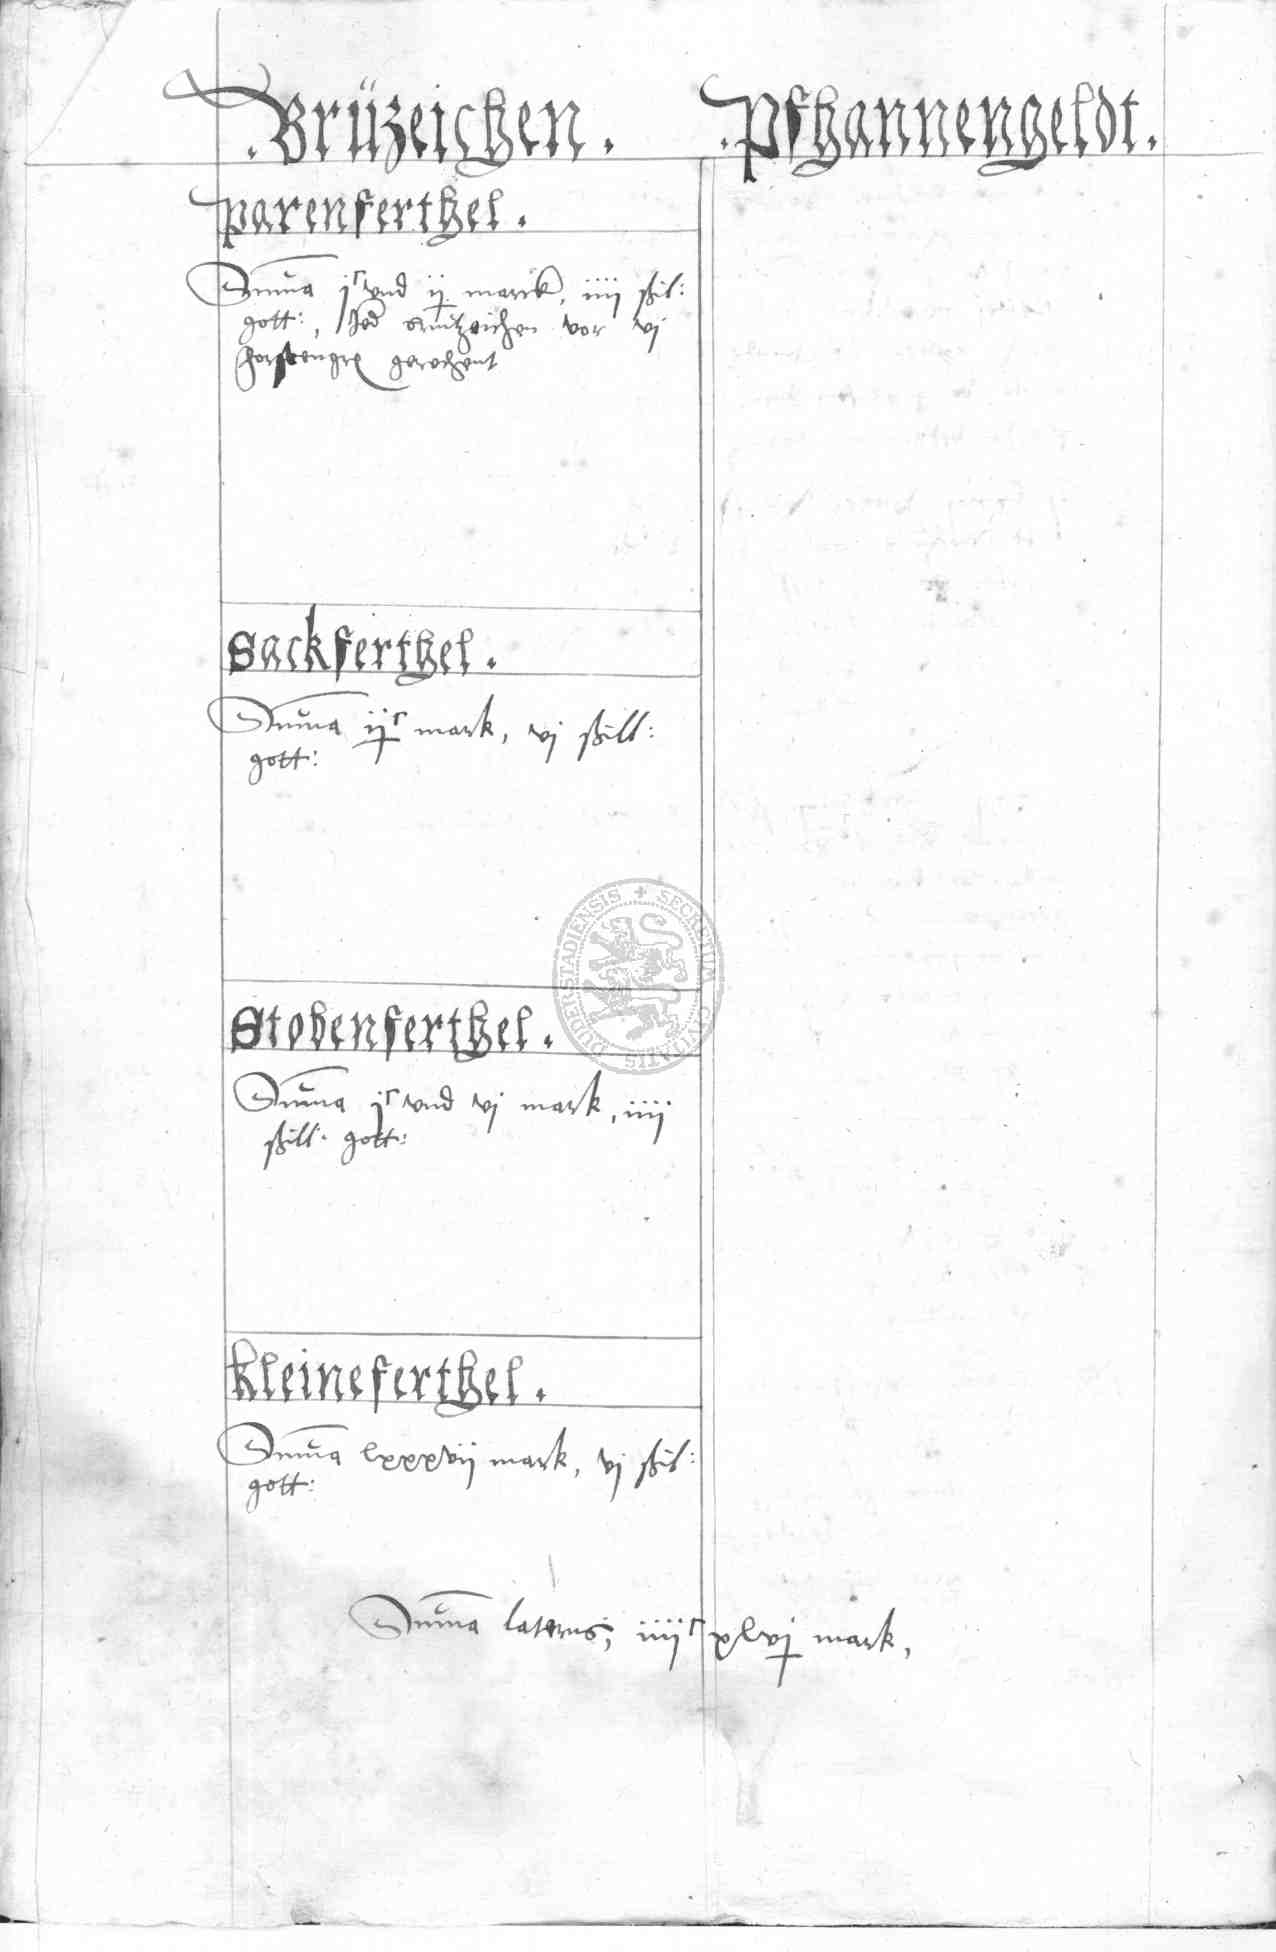 .Brüzeichen. .Pfhannengeldt.
parenferthel.
Summa jᶜ vnd ij marck, iiij ßil:
gott:, Jed brutzeichen vor vj
gerechent
Sackferthel.
Summa ijᶜ mark, vj ßill:
gott:
Stobenferthel.
Summa jᶜ vnd vj mark, iiij
ßill. gott:
kleineferthel.
Summa lxxxvii mark, vj ßil:
gott:
Summa lateris, iiijᶜ xlvj mark,
DUDERSTADIENSIS + SECRETUM CIVITATIS